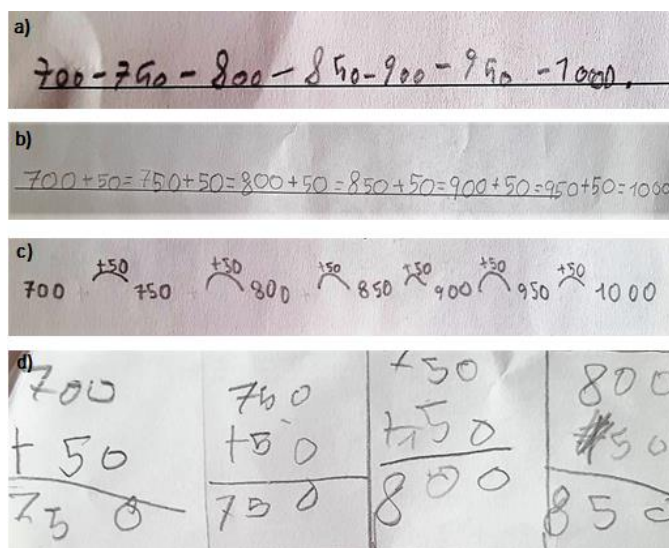 a)
700-750-800-850-900-950-1000.
b)
700+50=750+50=800+50=850+50=900+50=950+50=1000
c)
+50 +50 +50 +50 +50 +50
700 750 800 850 900 950 1000
d)
700
+50
750
750
+50
750
750
+50
800
800
50
850